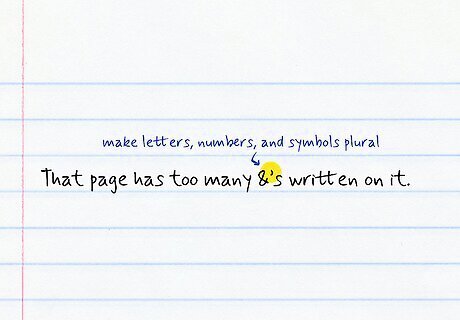 make letters, numbers, and symbols plural
That page has too many &'s written on it.